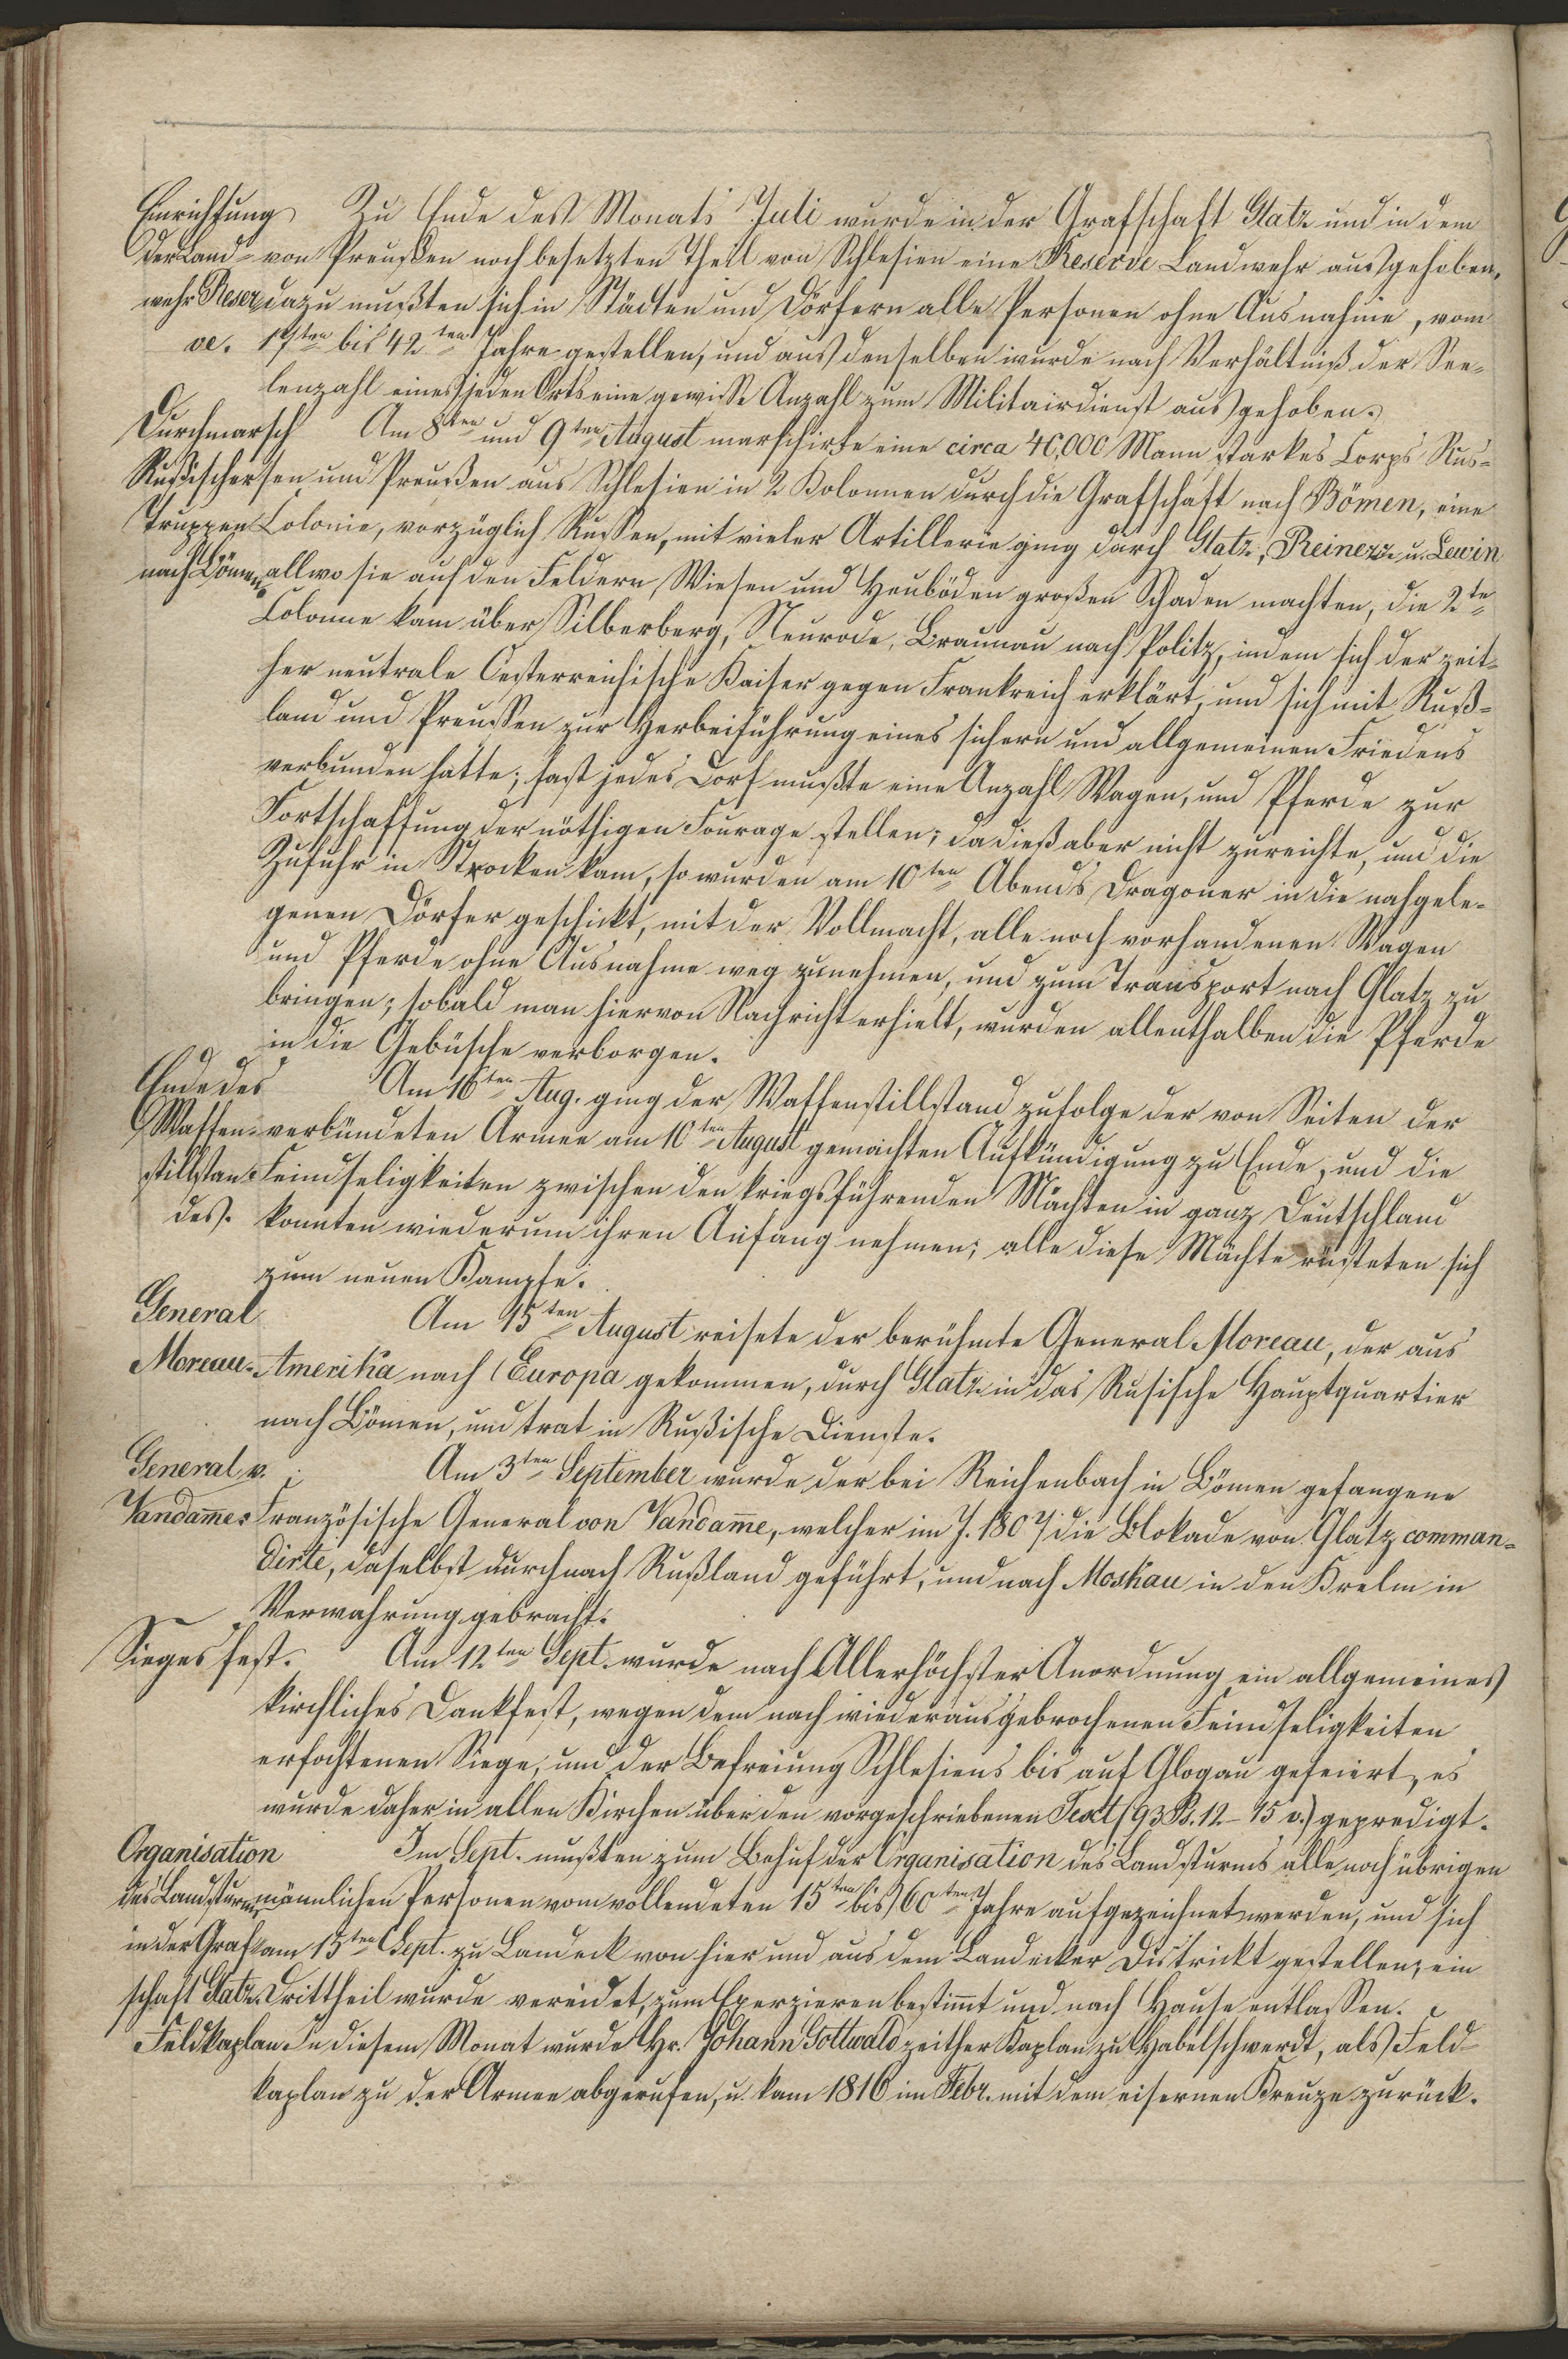 Einrichtung Zu Ende des Monats Juli wurde in der Grafschaft Glatz und in dem
der Land- von Preußen noch besetzten Theil von Schlesien eine Reserve Landwehr ausgehoben,
wehr Reser dazu mußten sich in Städten und Dörfern alle Personen ohne Ausnahme, vom
ve. 17ten bis 42ten Jahre gestellen, und aus denselben wurde nach Verhältniß der See-
lenzahl eines jeden Orts eine gewisse Anzahl zum Militairdienst ausgehoben.
Durchmarsch Am 8ten und 9ten August marschirte eine circa 40,000 Mann starkes Corps Rus-
Rußischer sen und Preußen aus Schlesien in 2 Kolonnen durch die Grafschaft nach Bömen, eine
Truppen Colonie, vorzüglich Russen, mit vieler Artillerie ging durch Glatz, Reinerz u. Lewin
nach Bömen. allwo sie auf den Feldern, Wiesen und Heuböden großen Schaden machten, die 2te
Colonne kam über Silberberg, Neurode, Braunau nach Politz, indem sich der zeit-
her neutrale Oesterreichische Kaiser gegen Frankreich erklärt, und sich mit Ruß-
land und Preussen zur Herbeiführung eines sichern und allgemeinen Friedens
verbunden hatte; fast jedes Dorf mußte eine Anzahl Wagen, und Pferde zur
Fortschaffung der nöthigen Fourage stellen; da dieß aber nicht zureichte, und die
Zufuhr in Strocken kam, so wurden am 10ten Abends Dragoner in die nahgele-
genen Dörfer geschickt, mit der Vollmacht, alle noch vorhandenen Wagen
und Pferde ohne Ausnahme weg zunehmen, und zum Transport nach Glatz zu
bringen; sobald man hiervon Nachricht erhielt, wurden allenthalben die Pferde
in die Gebüsche verborgen.
Ende des Am 16ten Aug. ging der Waffenstillstand zufolge der von Seiten der
Waffen- verbündeten Armee am 10ten August gemachten Aufkündigung zu Ende, und die
stillstan Feindseligkeiten zwischen den kriegsführenden Mächten in ganz Deutschland
des. konnten wiederum ihren Anfang nehmen; alle diese Mächte rüsteten sich
zum neuen Kampfe.
General Am 15ten August reisete der berühmte General Moreau, der aus
Moreau. Amerika nach Europa gekommen, durch Glatz in das Rusische Hauptquartier
nach Bömen, und trat in Rußische Dienste.
General v. Am 3ten September wurde der bei Reichenbach in Bömen gefangene
Vandam̄e. Französische General von Vandam̄e, welcher im J. 1807 die Blokade von Glatz comman-
dirte, daselbst durch nach Rußland geführt, und nach Moskau in den Krelm in
Verwahrung gebracht.
Siegesfest. Am 12ten Sept. wurde nach Allerhöchster Anordnung ein allgemeines
kirchliches Dankfest, wegen dem nach wiederausgebrochenen Feindseligkeiten
erfochtenen Siege, und der Befreiung Schlesiens bis auf Glogau gefeiert, es
wurde daher in allen Kirchen über den vorgeschriebenen Text (93 Ps. 12-15 v.) gepredigt.
Organisation Im Sept. mußten zum Behuf der Organisation des Landsturms alle noch übrigen
des Landsturms männlichen Personen vom vollendeten 15ten bis 60ten Jahre aufgezeichnet werden, und sich
in der Graf- am 15ten Sept. zu Landeck von hier und aus dem Landecker Districkt gestellen; ein
schaft Glatz. Drittheil wurde vereidet, zum Exerzieren bestimt und nach Hause entlassen.
Feldkaplan. In diesem Monat wurde Hr. Johann Gottwald zeither Kaplan zu Habelschwerdt, als Feld-
kaplan zu der Armee abgerufen, u. kam 1816 im Febr. mit dem eisernen Kreuze zurück.